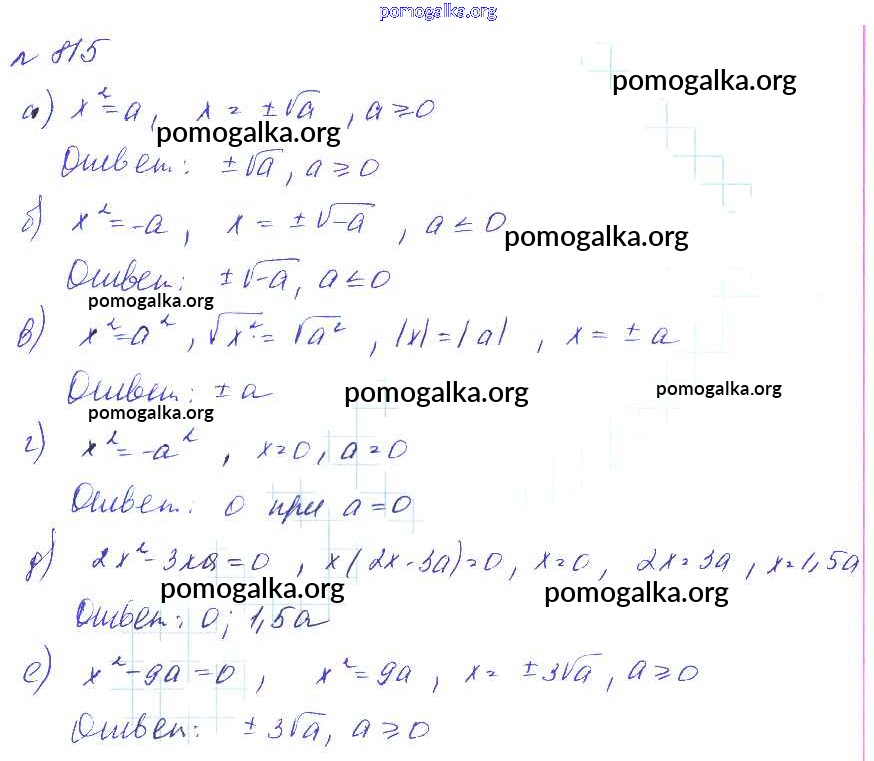 pomogalka.org
№ 815
pomogalka.org
а) x² = a, x = ±√a, a ≥ 0
pomogalka.org
Ответ: ±√a, a ≥ 0
б) x² = -a, x = ±√-a, a ≤ 0
pomogalka.org
Ответ: ±√-a, a ≤ 0
pomogalka.org
в) x² = a², √x² = √a², |x| = |a|, x = ± a
Ответ: ± a
pomogalka.org
pomogalka.org
pomogalka.org
г) x² = -a², x = 0, a = 0
Ответ: 0 при a = 0
д) 2x² - 3xa = 0, x(2x - 3a) = 0, x = 0, 2x = 3a, x = 1,5a
pomogalka.org
pomogalka.org
Ответ: 0; 1,5a
е) x² - 9a = 0, x² = 9a, x = ±3√a, a ≥ 0
Ответ: ± 3√a, a ≥ 0